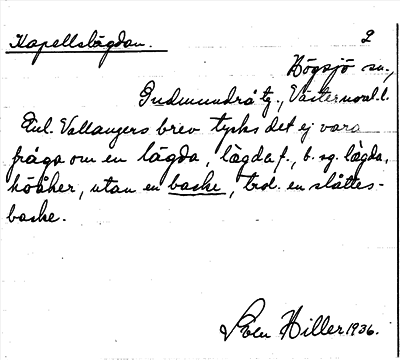 Kapellslägdan. 2
Högsjö sn.,
Gudmundrå tg., Västernorrl. l.
Enl. Vallangers brev tycks det ej vara
fråga om en lägda, lägda f., b. sg. lägda,
höåker, utan en backe, trol. en slåttes-
backe.
Sven Hiller 1936.